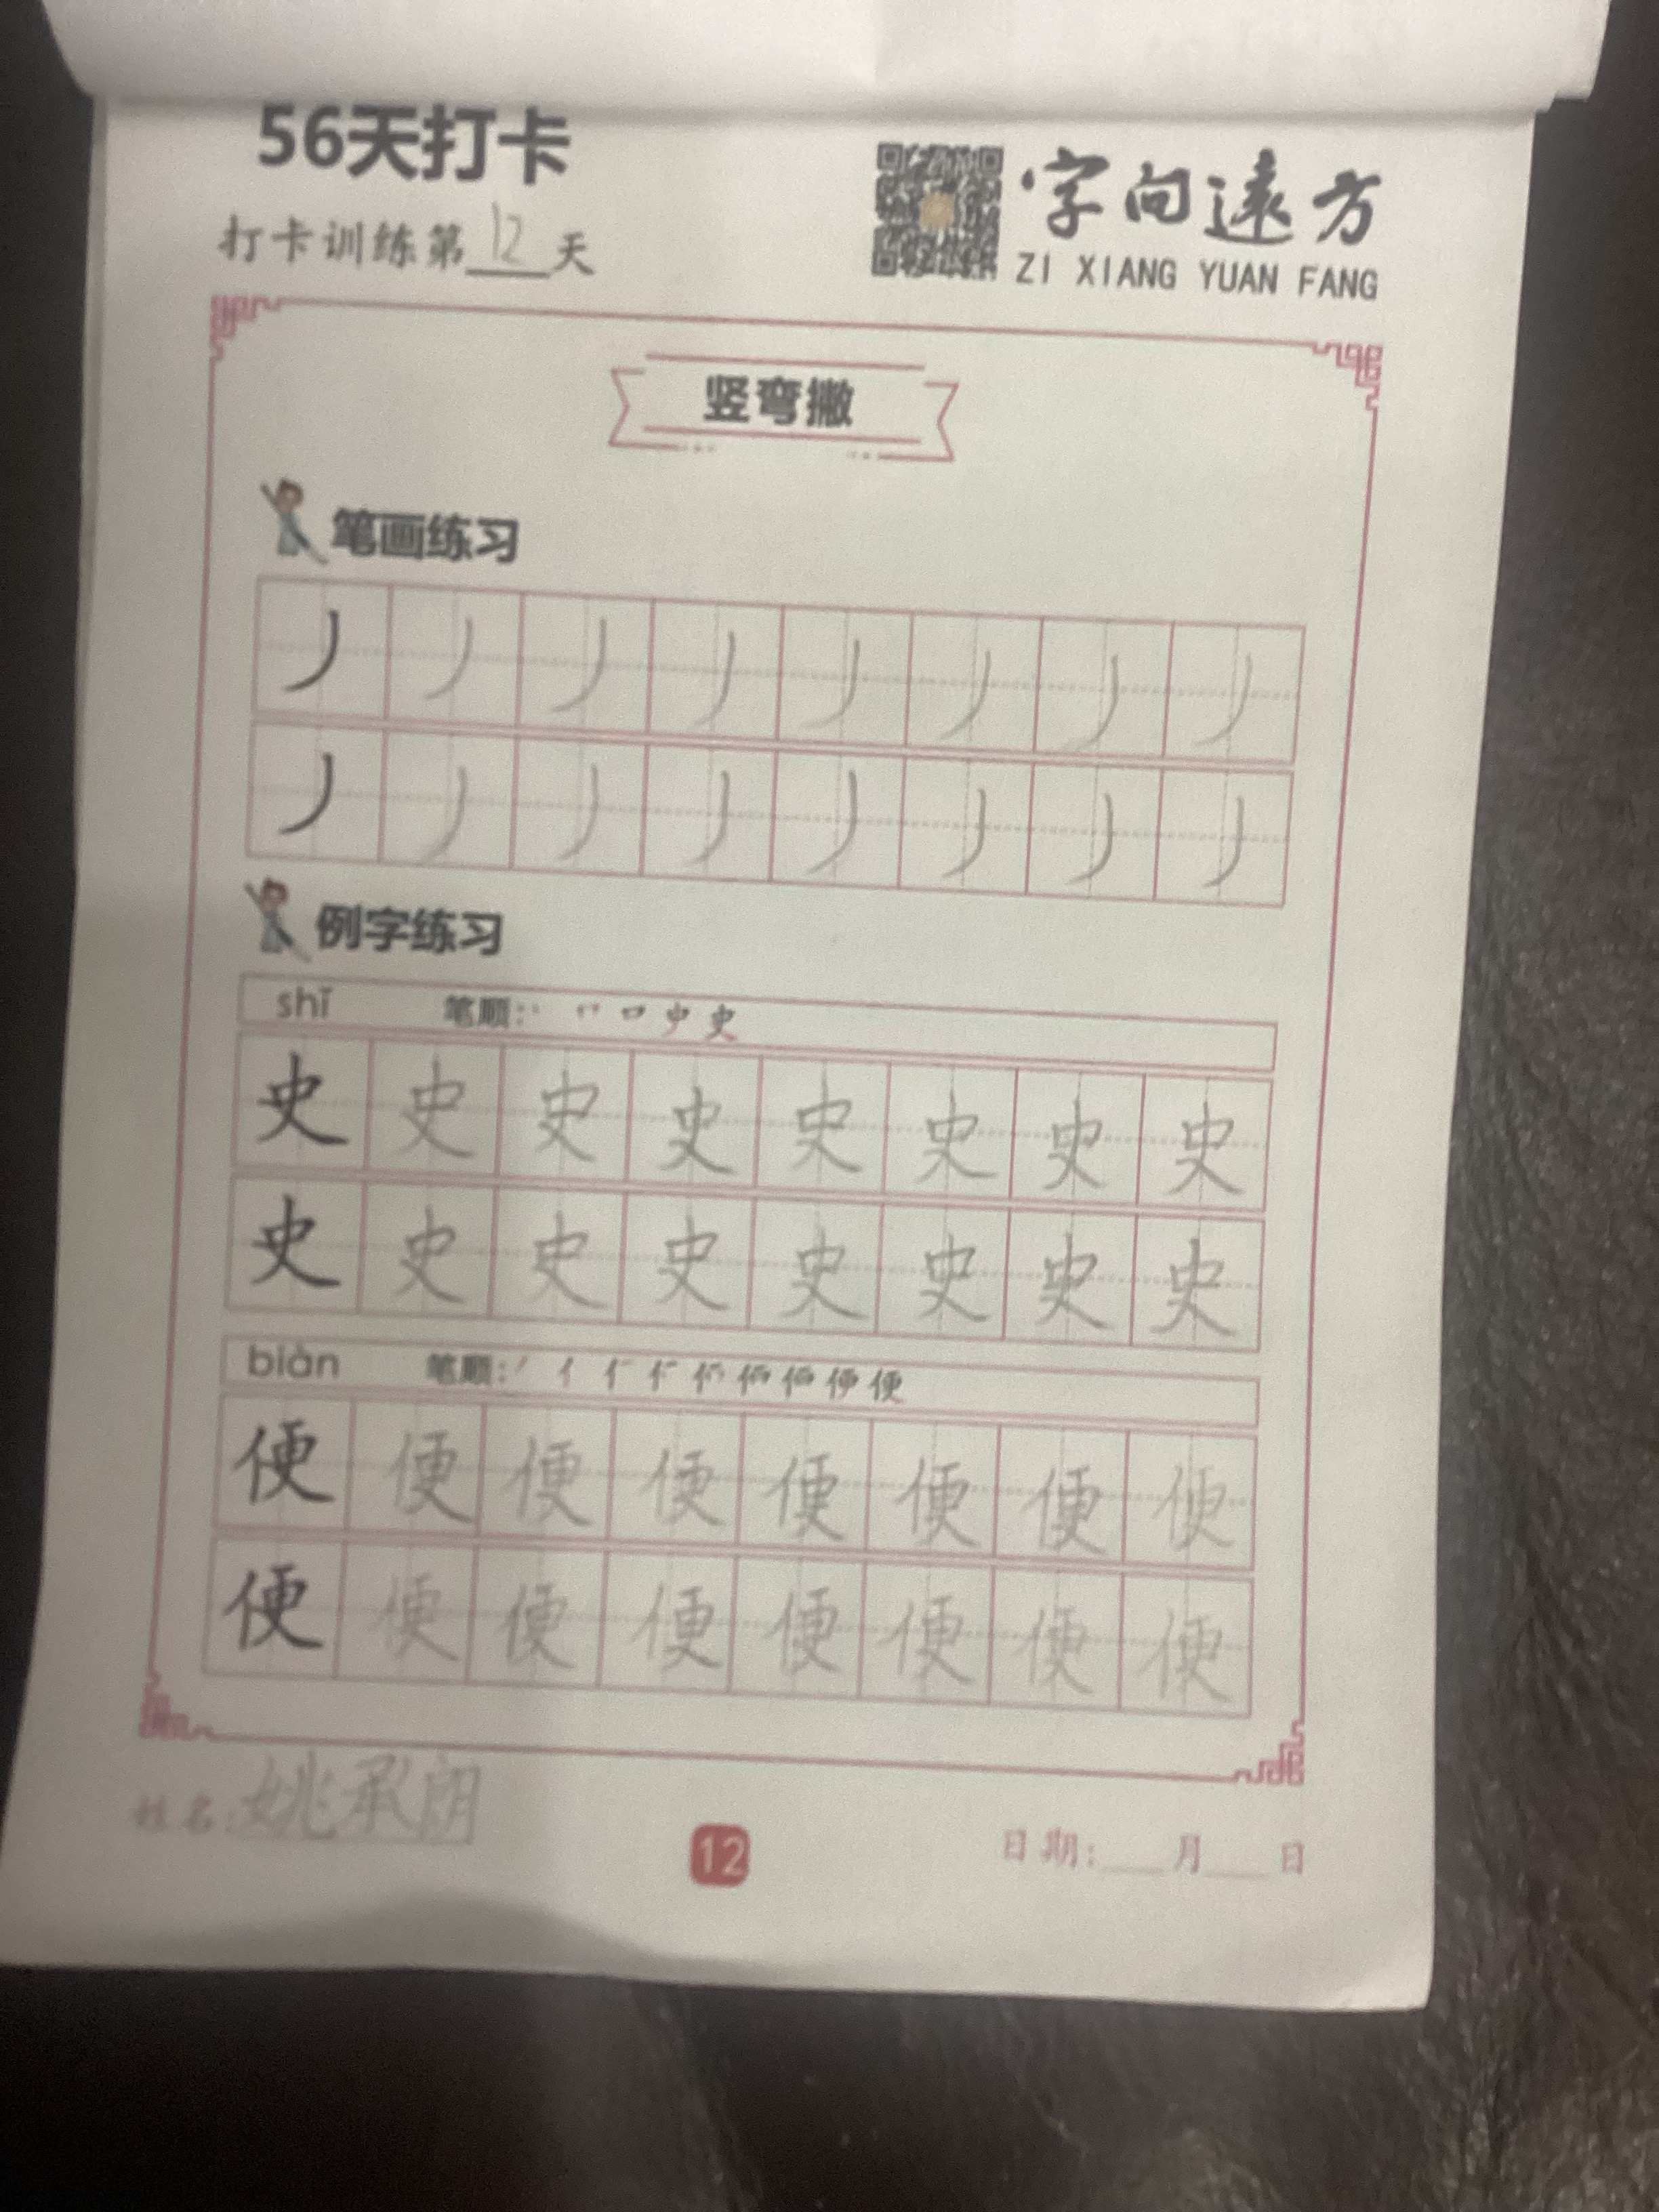 56天打卡
打卡训练第12天
字向遠方
ZI XIANG YUAN FANG
竖弯撇
笔画练习
丿 丿 丿 丿 丿 丿 丿 丿
丿 丿 丿 丿 丿 丿 丿 丿
例字练习
shǐ 笔顺:
史 史 史 史 史 史 史 史
史 史 史 史 史 史 史 史
biàn 笔顺:
便 便 便 便 便 便 便 便
便 便 便 便 便 便 便 便
姓名:姚承朗
12
日期:___月___日